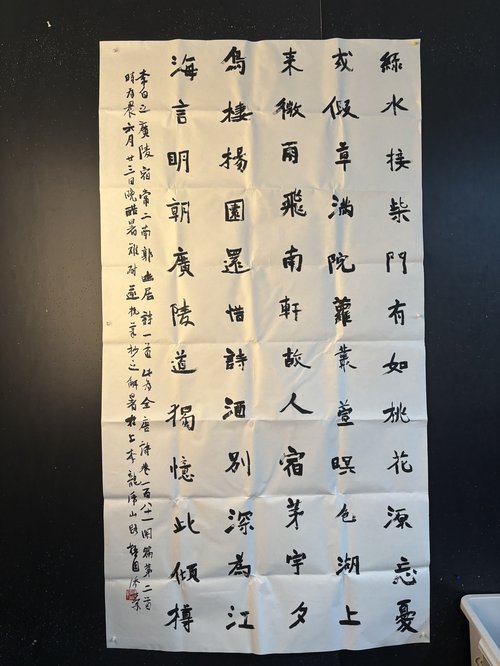 綠水接柴門有如桃花源忘憂
或假草滿院蘿叢萱暝色湖上
来微雨飛南軒故人宿茅宇夕
鳥棲楊園還惜詩酒別深為江
海言明朝廣陵道獨憶此傾樽
李白之廣陵宿常二南郭幽居詩一首此為全唐詩卷一百八十一開篇第二首
時六月廿三日晚酷暑難耐遂執筆抄之解暑於上龍山